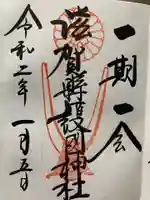 一期一会
滋賀縣護国神社
令和二年一月五日